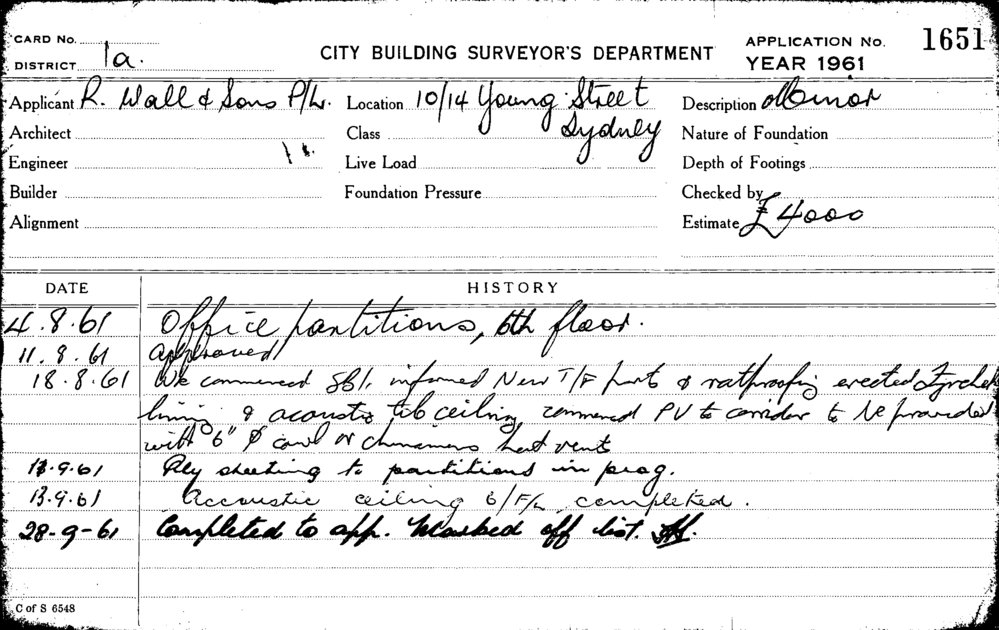 CARD No.
DISTRICT 1a.
CITY BUILDING SURVEYOR'S DEPARTMENT
APPLICATION No. 1651
YEAR 1961
Applicant R. Wall & Sons P/L. Location 10/14 Young Street Description Minor
Architect Class Sydney Nature of Foundation
Engineer Live Load Depth of Footings
Builder Foundation Pressure Checked by
Alignment Estimate £4000
DATE HISTORY
4.8.61 Office partitions, 6th floor.
11.8.61 Approved
18.8.61 We commenced informed New T/F parts & ratproofing erected
lining & acoustic ceiling commenced PV to corridor to be provided
with 6" Ø cowl or chimneys vent
13.9.61 Ply sheeting to partitions in prog.
13.9.61 Accoustic ceiling 6/F/L completed.
28-9-61 Completed to app. Marked off list.
C of S 6548